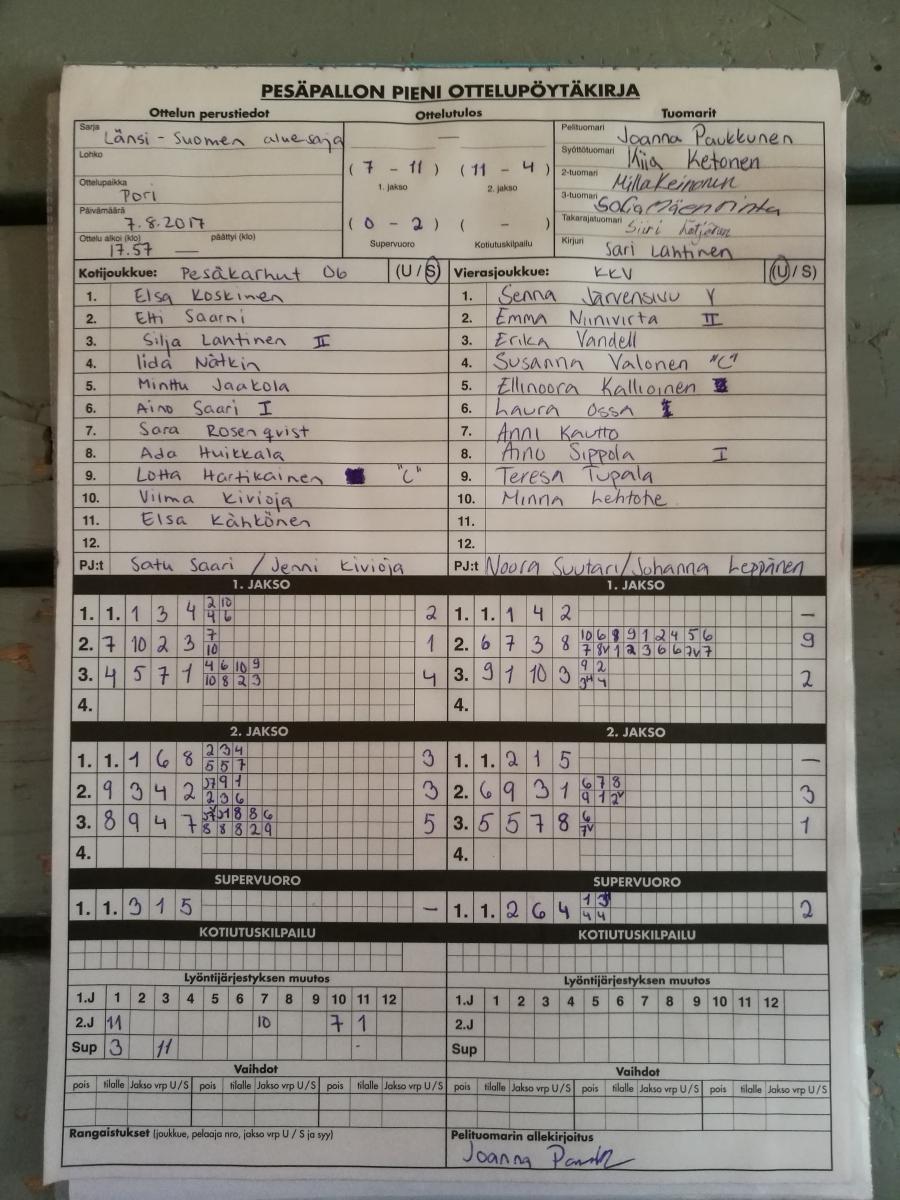 PESÄPALLON PIENI OTTELUPÖYTÄKIRJA
Ottelun perustiedot Ottelutulos Tuomarit
Sarja Länsi-Suomen aluesarja
Lohko
Ottelupaikka Pori
Päivämäärä 7.8.2017
Ottelu alkoi (klo) 17.57 päättyi (klo) —
—
(7 - 11) (11 - 4)
1. jakso 2. jakso
(0 - 2) ( - )
Supervuoro Kotiutuskilpailu
Pelituomari Joanna Paukkunen
Syöttötuomari Kiia Ketonen
2-tuomari Milla Keinonen
3-tuomari Sofia Mäenrinta
Takarajatuomari Siiri
Kirjuri Sari Lahtinen
Kotijoukkue: Pesäkarhut 06 (U / S)
1. Elsa Koskinen
2. Etti Saarni
3. Silja Lahtinen II
4. Iida Nätkin
5. Minttu Jaakola
6. Aino Saari I
7. Sara Rosenqvist
8. Ada Huikkala
9. Lotta Hartikainen "C"
10. Vilma Kivioja
11. Elsa Kähkönen
12.
PJ:t Satu Saari / Jenni Kivioja
Vierasjoukkue: KKV (U / S)
1. Senna Järvensivu Y
2. Emma Niinivirta II
3. Erika Vandell
4. Susanna Valonen "C"
5. Ellinoora Kallioinen
6. Laura Ossa
7. Anni Kautto
8. Aino Sippola I
9. Teresa Tupala
10. Minna Lehtohe
11.
12.
PJ:t Noora Suutari/Johanna Leppänen
1. JAKSO 1. JAKSO
1. 1. 1 3 4 2 10 2
4 6
2. 7 10 2 3 7 1
10
3. 4 5 7 1 4 6 10 9 4
10 8 2 3
4.
1. 1. 1 4 2 —
2. 6 7 3 8 10 6 8 9 1 2 4 5 6 9
7 8v 1 2 3 6 6 7v 7
3. 9 1 10 3 9 2 2
3H 4
4.
2. JAKSO 2. JAKSO
1. 1. 1 6 8 2 3 4 3
5 5 7
2. 9 3 4 2 9 1 3
2 3 6
3. 8 9 4 7 8 8 6 5
8 8 8 2 9
4.
1. 1. 2 1 5 —
2. 6 9 3 1 6 7 8 3
9 1 2v
3. 5 5 7 8 6 1
7v
4.
SUPERVUORO SUPERVUORO
1. 1. 3 1 5 —
1. 1. 2 6 4 1 3 2
4 4
KOTIUTUSKILPAILU KOTIUTUSKILPAILU
Lyöntijärjestyksen muutos Lyöntijärjestyksen muutos
1.J 1 2 3 4 5 6 7 8 9 10 11 12
2.J 11 10 7 1
Sup 3 11
1.J 1 2 3 4 5 6 7 8 9 10 11 12
2.J
Sup
Vaihdot Vaihdot
pois tilalle Jakso vrp U/S pois tilalle Jakso vrp U/S pois tilalle Jakso vrp U/S
pois tilalle Jakso vrp U/S pois tilalle Jakso vrp U/S pois tilalle Jakso vrp U/S
Rangaistukset (joukkue, pelaaja nro, jakso vrp U / S ja syy)
Pelituomarin allekirjoitus
Joanna